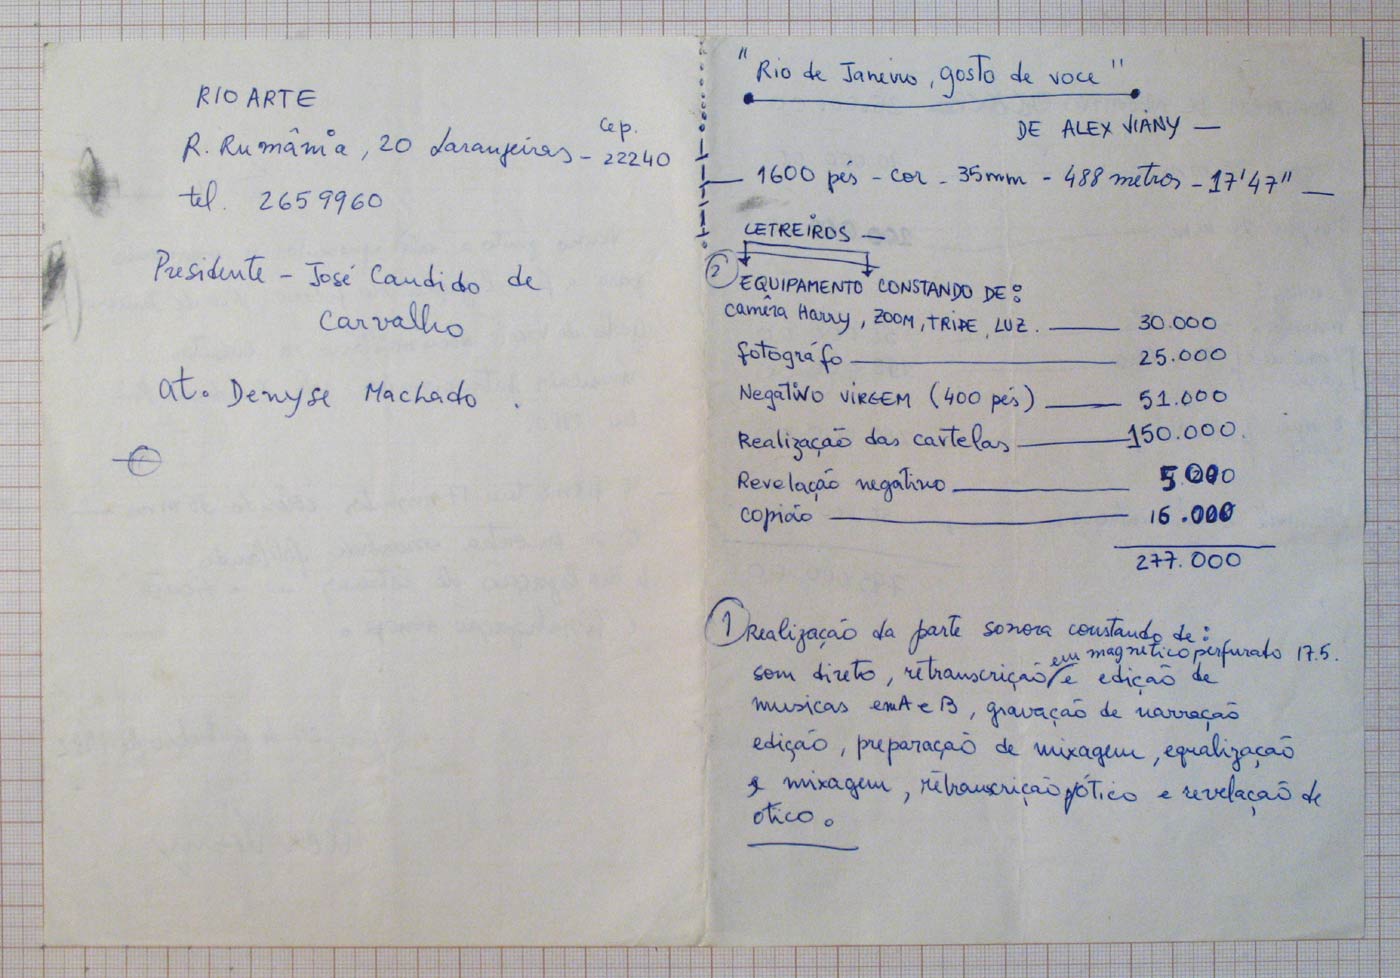 RIO ARTE
R. Rumânia, 20 Laranjeiras - Cep. 22240
tel. 2659960
Presidente - José Candido de
Carvalho
at. Denyse Machado.
"Rio de Janeiro, gosto de voce"
DE ALEX VIANY —
— 1600 pés - cor - 35mm - 488 metros - 17'47" —
LETREIROS —
2 EQUIPAMENTO CONSTANDO DE:
camêra Harry, ZOOM, TRIPE, LUZ. — 30.000
fotográfo — 25.000
Negativo VIRGEM (400 pés) — 51.000
Realização das cartelas — 150.000.
Revelação negativo — 5.000
copião — 16.000
277.000
1 Realização da parte sonora constando de:
em magnetico perfurado 17.5.
som direto, retranscrição e edição de
musicas em A e B, gravação de narração
edição, preparação de mixagem, equalização
e mixagem, retranscrição ótico e revelação de
otico.